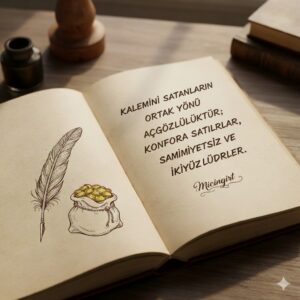 KALEMİNİ SATANLARIN
ORTAK YÖNÜ
AÇGÖZLÜLÜKTÜR;
KONFORA SATILRLAR,
SAMİMİYETSİZ VE
İKİYÜZLÜDRLER.
Micingirt